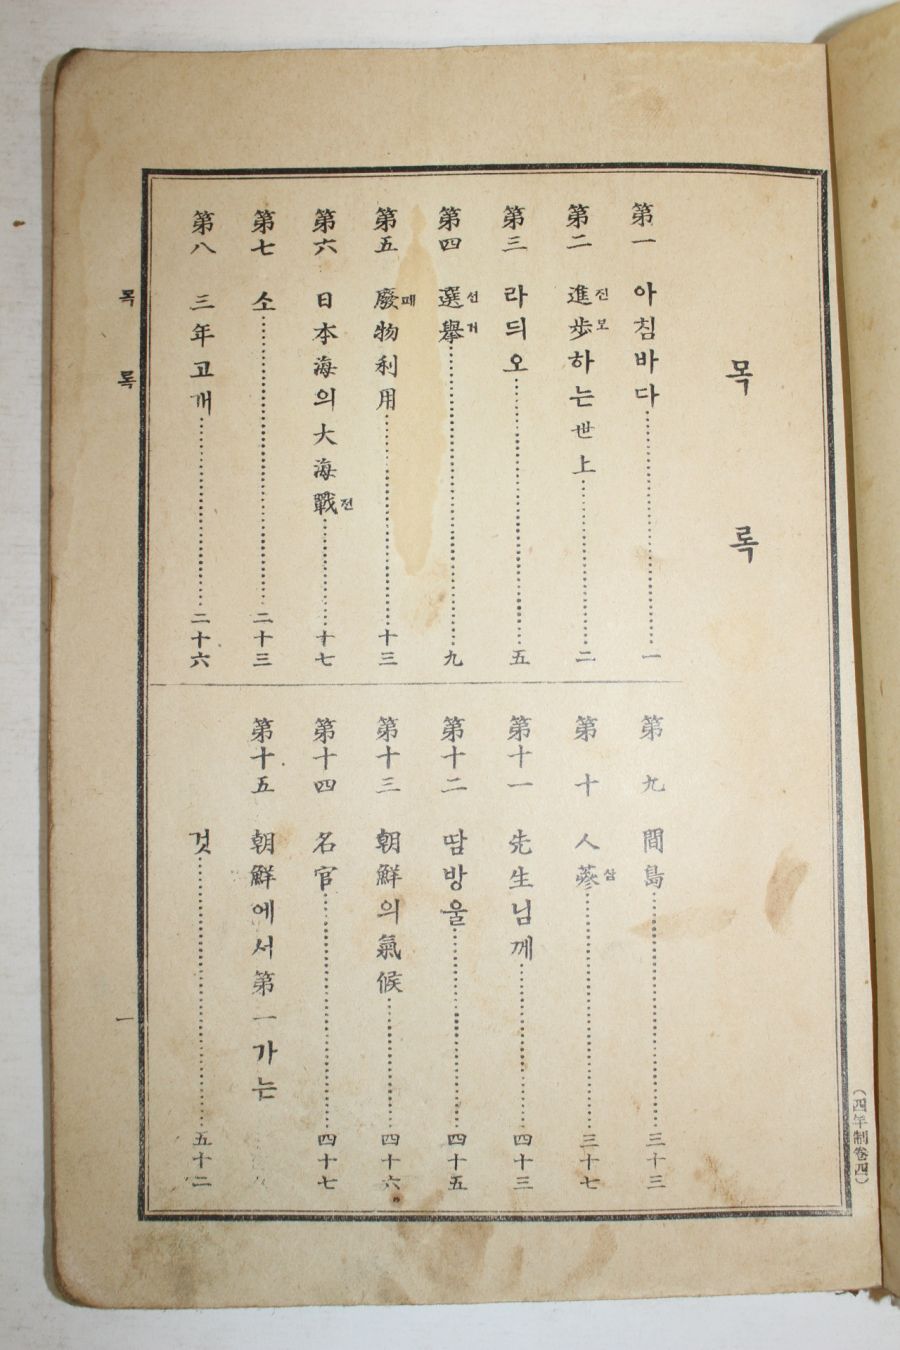 목록
第一 아침바다 一
第二 進歩하는世上 二
진 모
第三 라듸오 五
第四 選擧 九
선 거
第五 廢物利用 十三
페
第六 日本海의大海戰 十七
전
第七 소 二十三
第八 三年고개 二十六
第九 間島 三十三
第十 人蔘 三十七
삼
第十一 先生님께 四十三
第十二 땀방울 四十五
第十三 朝鮮의氣候 四十六
第十四 名官 四十七
第十五 朝鮮에서第一가는
것 五十二
목록
一
(四年制卷四)